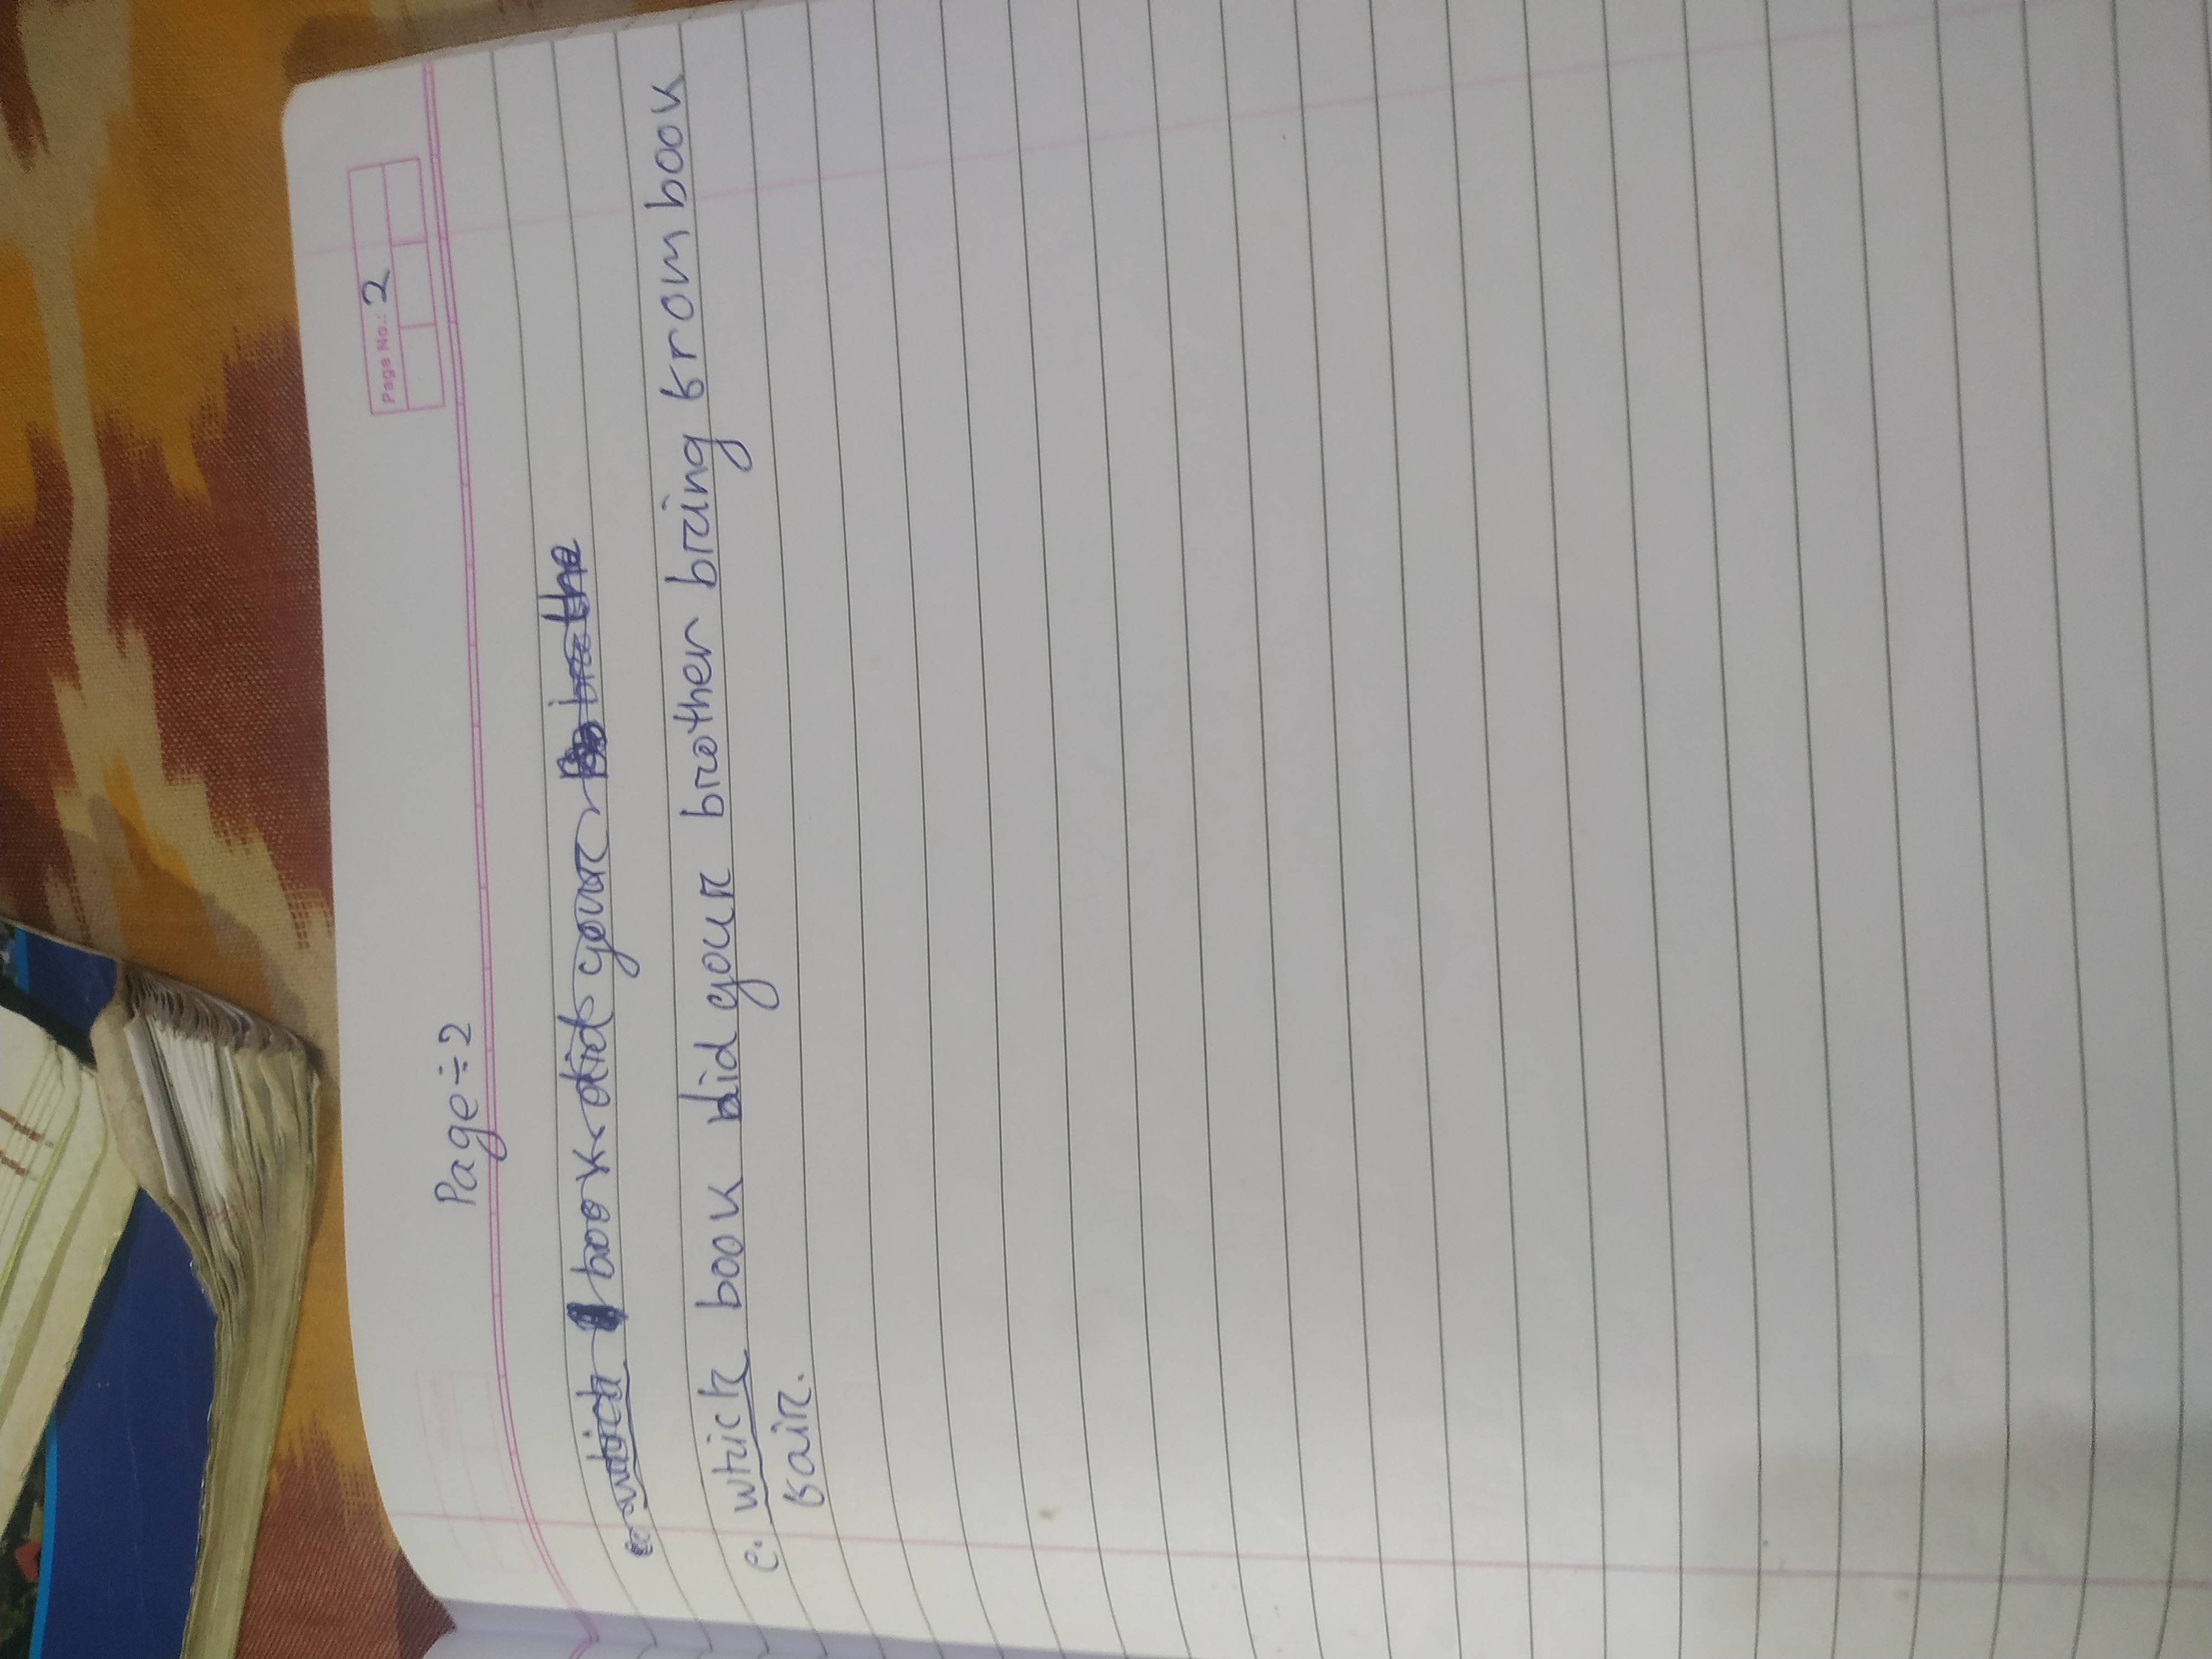 Page No.: 2
Page ÷ 2
which book did your brothe
e. which book did your brother bring from book
fair.